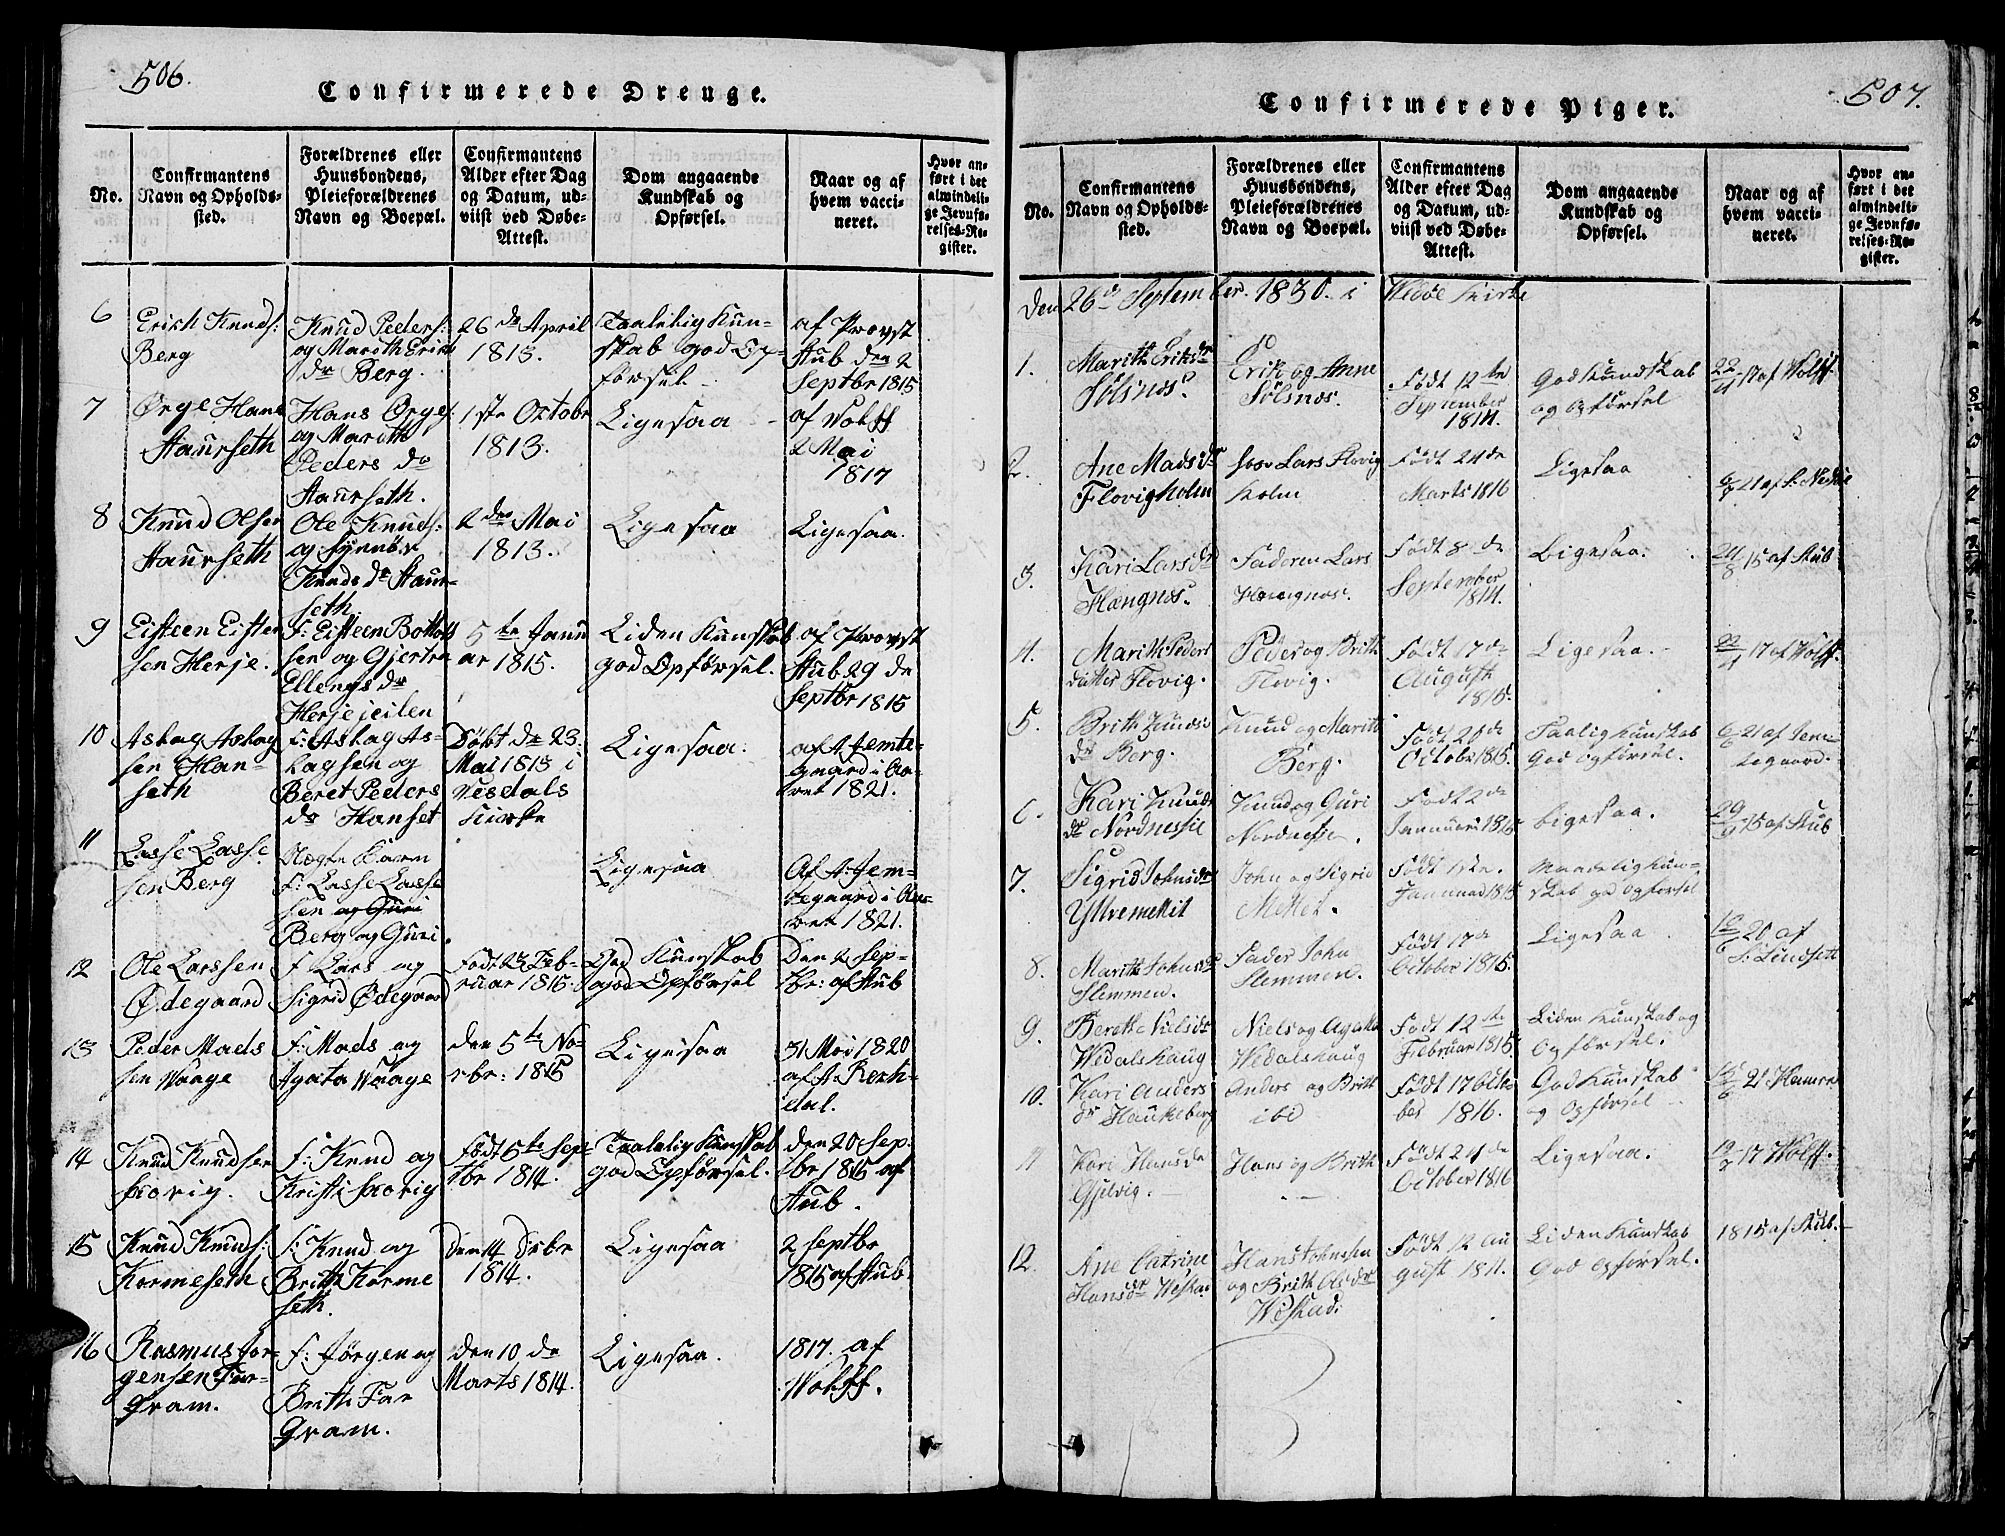 506.
Confirmerede Drenge.
No.
Confirmantens
Navn og Opholds-
sted.
Forældrenes eller
Huusbondens,
Pleieforældrenes
Navn og Boepæl.
Confirmantens
Alder efter Dag
og Datum, ud-
viist ved Døbe-
Attest.
Dom angaaende
Kundskab og
Opførsel.
Naar og af
hvem vacci-
neret.
Hvor an-
ført i det
almindeli-
ge Jevnfø-
relses-Re-
gister.
6
Erich Knuds:
Berg
Knud Peders:
og Marith Eriks
dr Berg.
26 de April
1813.
Taalelig Kun-
skab god Op-
førsel -
af Provst
Stub den 2
Septbr 1815
7
Ørge Hans
Haurseth
Hans Ørges:
og Marith
Peders dr
Haurseth.
1ste Octobr
1813.
Ligesaa
af Wolff
2 Mai
1817
8
Knud Olsen
Haurseth
Ole Knuds:
og Synnøv
Knuds dr Haur-
seth
2 den Mai
1813.
Ligesaa
Ligesaa.
9
Eisteen Eisten
sen Herje.
F: Eisteen Bottolf
sen og Gjertru
Ellengs dr
Herjejeilen
5 te Janu
ar 1815.
Liden Kunskab
god Opførsel.
af Provst
Stub 29 de
Septbr 1815
10
Aslag Aslag
sen Han-
seth
F: Aslag As-
lagsen og
Beret Peders
dr Hanset
Døbt de 23.
Mai 1813 i
Vesdals
Kirke
Ligesaa.
af A. Jemte-
gaard i Aa-
ret 1821.
11
Lasse Lasse
sen Berg
Uægte Barn
F: Lasse Lasse
sen og Guri
Berg og Guri.
Ligesaa
Af A. Jem-
tegaard i Aa-
ret 1821.
12
Ole Larssen
Ødegaard
F Lars og
Sigrid Ødegaard
Født 23 Feb-
ruar 1815.
God Kunskab
god Opførsel
Den 2 Sep-
tbr: af Stub
13
Peder Mads
sen Waage
F: Mads og
Agata Waage
den 5te No-
vbr: 1815
Ligesaa
31 Mai 1820
af A.
dal.
14
Knud Knudsen
F: Knud og
Kristi
Født 5te Sep-
tbr 1814.
Taalelig Kunskab
god Opførsel.
den 20 Sep.
tbr 1815 af
Stub.
15
Knud Knuds:
Kormeseth
F: Knud og
Britt Korme
seth.
den 14 Debr
1814.
Ligesaa
2 Septbr
1815 af Stub.
16
Rasmus Jør-
gensen Far-
gram.
F: Jørgen og
Britt Far
gram.
den 10 de
Marts 1814.
Ligesaa.
1817. af
Wolff.
507.
Confirmerede Piger.
No.
Confirmantens
Navn og Opholds-
sted.
Forældrenes eller
Huusbondens,
Pleieforældrenes
Navn og Boepæl.
Confirmantens
Alder efter Dag
og Datum, ud-
viist ved Døbe-
Attest.
Dom angaaende
Kundskab og
Opførsel.
Naar og af
hvem vacci-
neret.
Hvor an-
ført i det
almindeli-
ge Jevnfø-
relses-Re-
gister.
Den 26 de September 1830. i Wedøe Kirke
1.
Marith Eriks dr
Sølsnes.
Erik og Anne
Sølsnes.
Født 12 te
September
1814.
God Kundskab
og Opførsel
22/4 17 af Wolff.
2.
Ane Mads dr
Flovigholm
Lars Flovig
holm
Født 24 de
Marts 1816
Ligesaa
3.
Kari Lars dr
Hængnes.
Faderen Lars
Hængnes.
Født 8 de
September
1814.
Ligesaa.
24/8 15 af Stub
4.
Marith Peders
datter Flovig.
Peder og Brith
Flovig.
Født 17 de
August
1815.
Ligesaa.
22/4 17 af Wolff.
5.
Brith Knuds
dr Berg.
Knud og Marith
Berg.
Født 20 de
October 1815.
Taalig Kunskab
God Opførsel.
6/6 21 af Jem
tegaard.
6.
Kari Knuds
dr Nordnessie
Knud og Guri
Nordnessie.
Født 2 de
Januari 1815
Ligesaa.
29/9 15 af Stub
7.
Sigrid Johns dr
Yttremettet
John og Sigrid
Mettet.
Født 1ste
Januari 1815
Maadelig Kun-
skab god Opførsel
8.
Marith Johns dr
Slemmen.
Fader John
Slemmen.
Født 17 de
October 1815.
Ligesaa.
16/6 20 af
S: Lindsett
9.
Berethe Niels dr
Wedalshaug
Niels og Agatha
Wedalshaug
Født 12 te
Februar 1815
Liden Kunskab og
Opførsel.
10.
Kari Anders
dr Haukeberg
Anders og Britt
ibd
Født 17 Octo-
ber 1816.
God Kunskab
og Opførsel
21
11
Kari Hans dr
Gjelvig.
Hans og Brith
Født 24 de
October 1816
Ligesaa.
19/2 17 Wolff.
12.
Ane Catrine
Hans dr Westad
Hans Johnsen
og Brith Ole dr
Westad.
Født 12 Au
gust 181
Liden Kundskab
God Opførsel.
1815 af Stub.